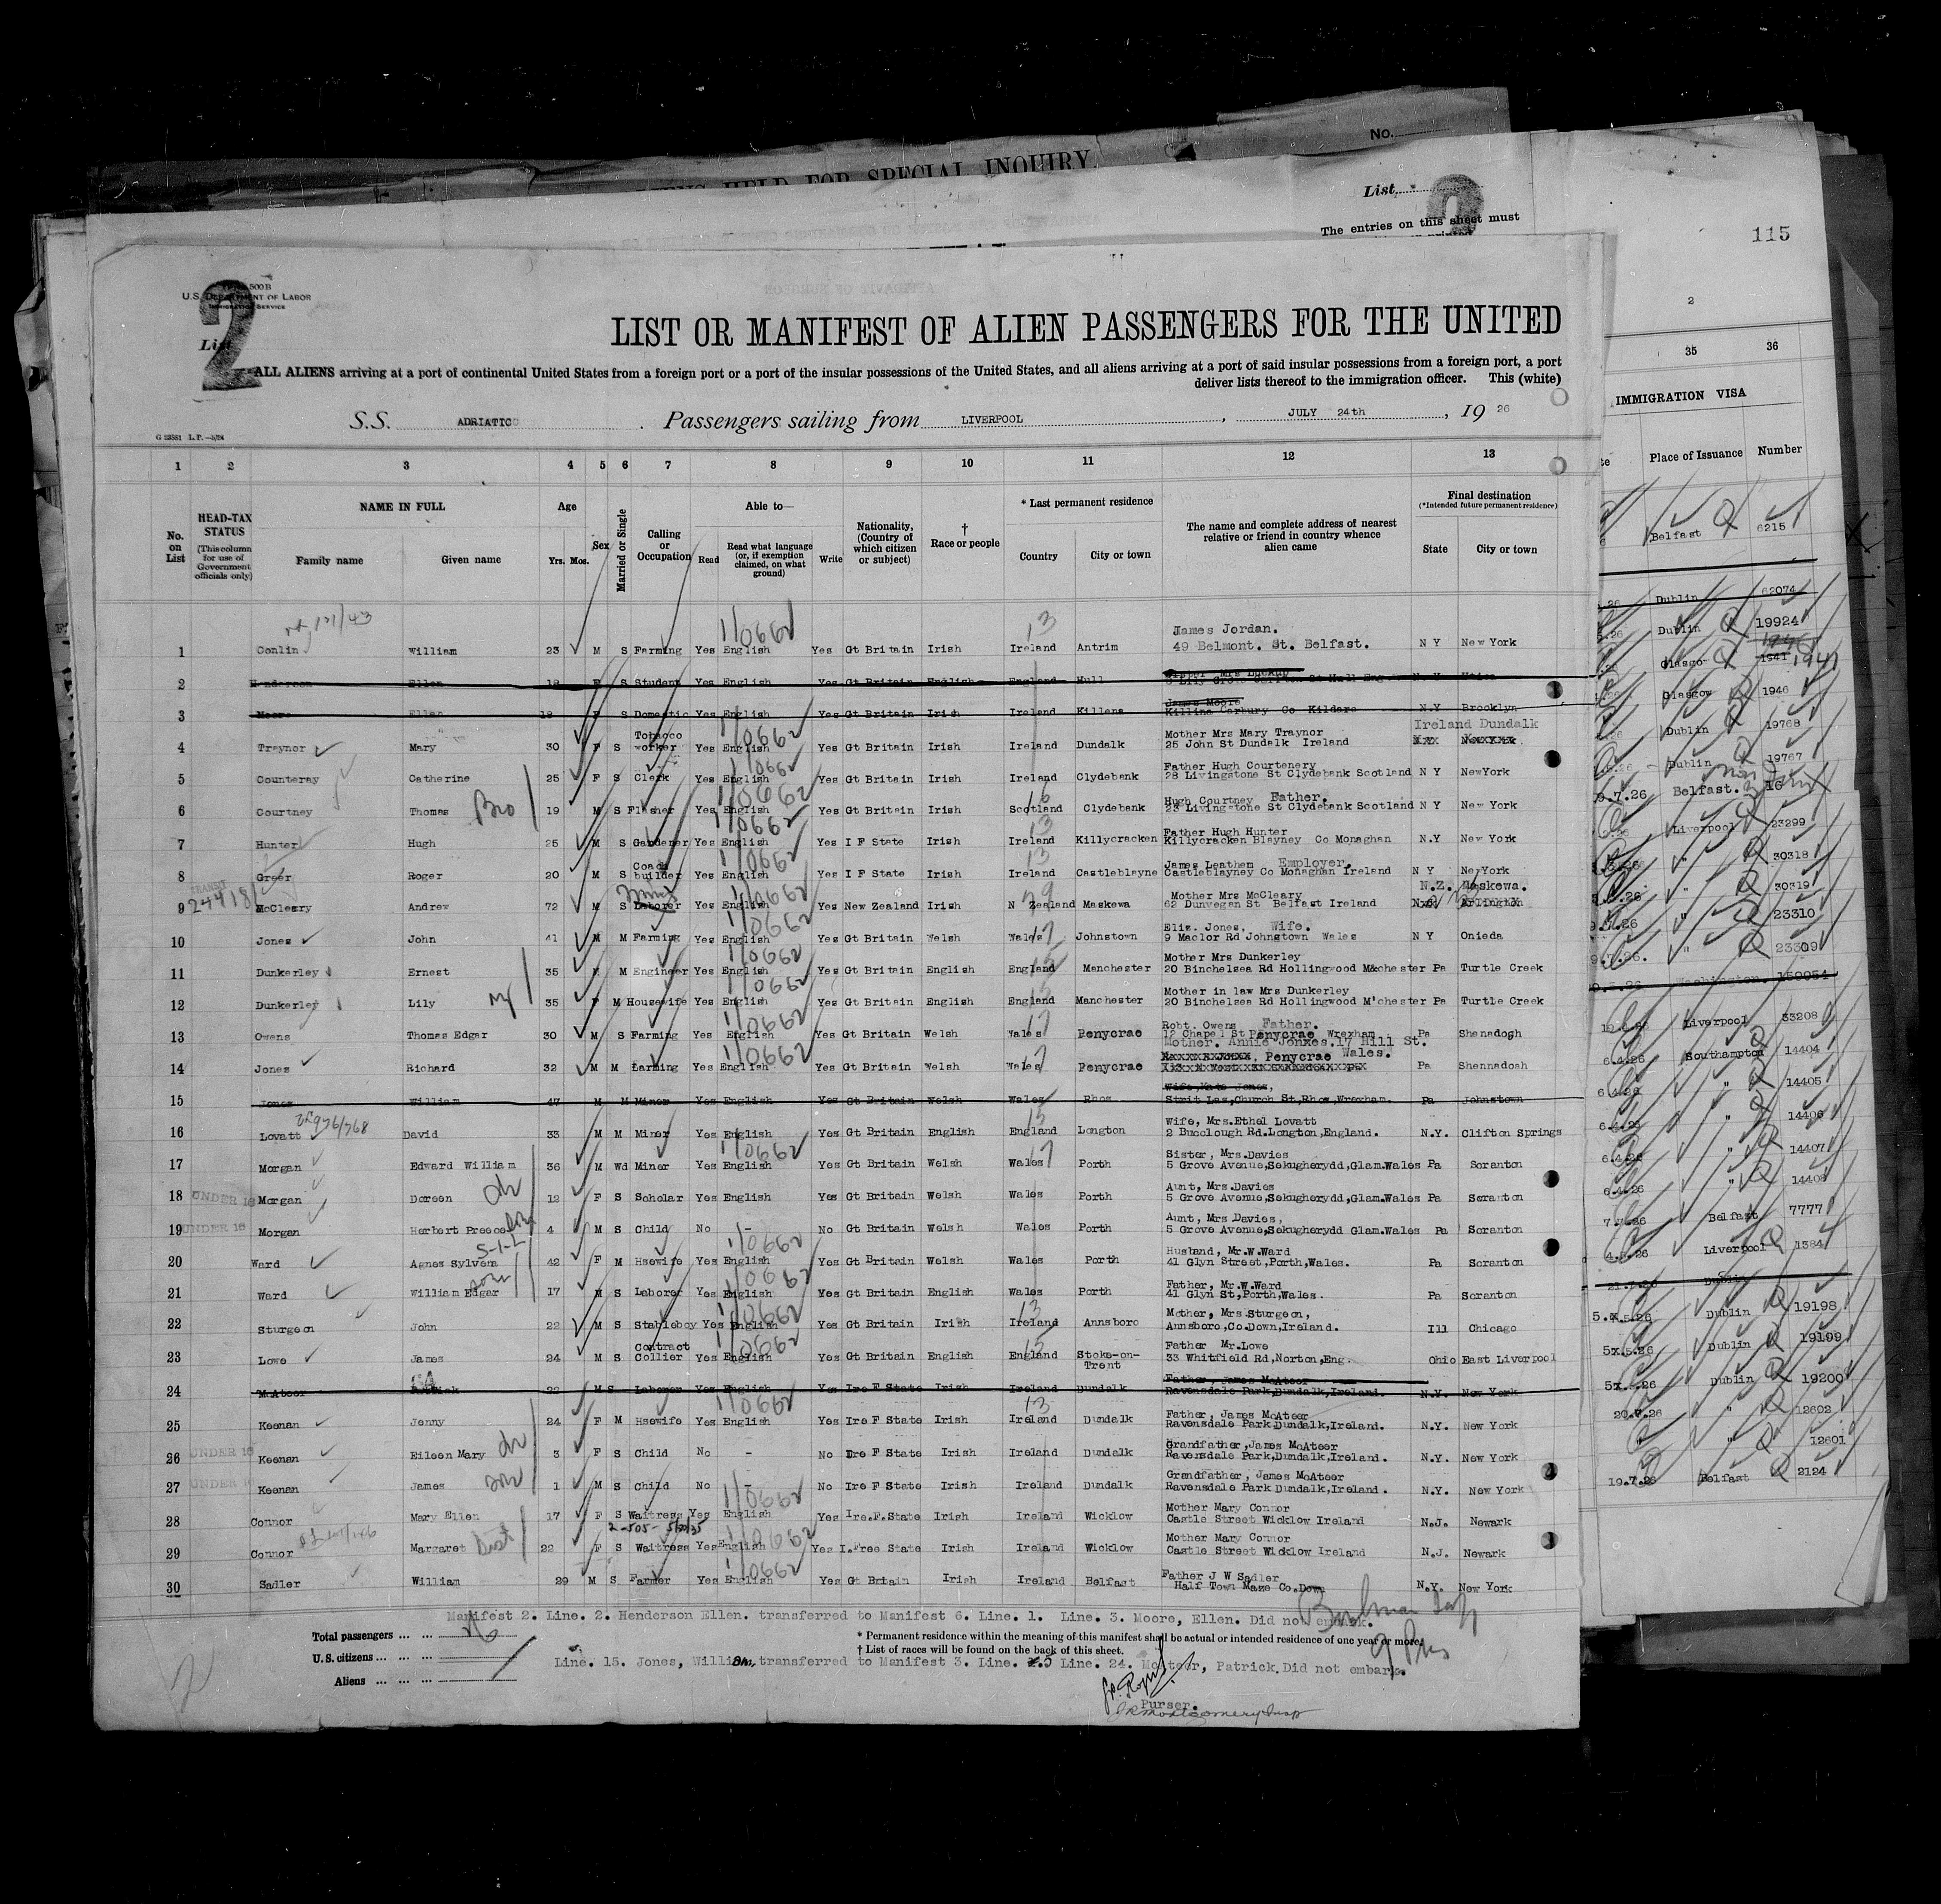 No.
ALIENS HELD FOR SPECIAL INQUIRY.
List
The entries on this sheet must
115
2
500B
U.S. DEPARTMENT OF LABOR
IMMIGRATION SERVICE
2
List
LIST OR MANIFEST OF ALIEN PASSENGERS FOR THE UNITED
ALL ALIENS arriving at a port of continental United States from a foreign port or a port of the insular possessions of the United States, and all aliens arriving at a port of said insular possessions from a foreign port, a port
deliver lists thereof to the immigration officer. This (white)
S.S. ADRIATIC. Passengers sailing from LIVERPOOL, JULY 24th, 19 26
1 2 3 4 5 6 7 8 9 10 11 12 13 35 36
IMMIGRATION VISA
Place of Issuance Number
No. on List
HEAD-TAX STATUS (This column for use of Government officials only)
NAME IN FULL Family name Given name
Age Yrs. Mos.
Sex
Married or Single
Calling or Occupation
Able to— Read Read what language (or, if exemption claimed, on what ground) Write
Nationality, (Country of which citizen or subject)
† Race or people
* Last permanent residence Country City or town
The name and complete address of nearest relative or friend in country whence alien came
Final destination (*Intended future permanent residence) State City or town
James Jordan.
1 Conlin William 23 M S Farming Yes English Yes Gt Britain Irish Ireland Antrim 49 Belmont. St. Belfast. N Y New York
2 Henderson Ellen 18 F S Student Yes English Yes Gt Britain English England Hull
James Moore
3 Moore Ellen 18 F S Domestic Yes English Yes Gt Britain Irish Ireland Killena Killina Carbury Co Kildare N.Y Brooklyn
Tobacco Mother Mrs Mary Traynor Ireland Dundalk
4 Traynor Mary 30 F S worker Yes English Yes Gt Britain Irish Ireland Dundalk 25 John St Dundalk Ireland
Father Hugh Courtenery
5 Counteray Catherine 25 F S Clerk Yes English Yes Gt Britain Irish Ireland Clydebank 28 Livingstone St Clydebank Scotland N Y NewYork
Hugh Courtney Father.
6 Courtney Thomas Bro 19 M S Flasher Yes English Yes Gt Britain Irish Scotland Clydebank 23 Livingstone St Clydebank Scotland N Y New York
Father Hugh Hunter
7 Hunter Hugh 25 M S Gardener Yes English Yes I F State Irish Ireland Killycracken Killycracken Blayney Co Monaghan N.Y New York
Coach James Leathem Employer.
8 Greer Roger 20 M S builder Yes English Yes I F State Irish Ireland Castleblayne Castleblayney Co Monaghan Ireland N Y NewYork
TRANSIT Mother Mrs McCleary N.Z. Maskewa.
9 24418 McCleary Andrew 72 M S Laborer Yes English Yes New Zealand Irish N Zealand Maskewa 62 Dunvegan St Belfast Ireland
Eliz. Jones, Wife.
10 Jones John 41 M M Farming Yes English Yes Gt Britain Welsh Wales Johnstown 9 Maclor Rd Johnstown Wales N Y Onieda
Mother Mrs Dunkerley
11 Dunkerley Ernest 35 M M Engineer Yes English Yes Gt Britain English England Manchester 20 Binchelsea Rd Hollingwood M&chester Pa Turtle Creek
Mother in law Mrs Dunkerley
12 Dunkerley Lily 35 F M Housewife Yes English Yes Gt Britain English England Manchester 20 Binchelsea Rd Hollingwood M'chester Pa Turtle Creek
Robt. Owens Father.
13 Owens Thomas Edgar 30 M S Farming Yes English Yes Gt Britain Welsh Wales Penycrae 12 Chapel St Penycrae Wrexham Pa Shenadogh
Mother. Annie Jonxes.17 Hill St.
14 Jones Richard 32 M M Farming Yes English Yes Gt Britain Welsh Wales Penycrae Penycrae Wales. Pa Shennadosh
Wife, Kate Jones,
15 Jones William 47 M M Miner Yes English Yes Gt Britain Welsh Wales Rhos Stuit Las, Church St, Rhos, Wrexham. Pa Johnstown
Wife, Mrs.Ethel Lovatt
16 Lovatt David 33 M M Miner Yes English Yes Gt Britain English England Longton 2 Bucclough Rd.Longton,England. N.Y. Clifton Springs
Sister, Mrs.Davies
17 Morgan Edward William 36 M Wd Miner Yes English Yes Gt Britain Welsh Wales Porth 5 Grove Avenue,Sekugherydd,Glam.Wales Pa Scranton
Aunt, Mrs.Davies
18 UNDER 16 Morgan Doreen 12 F S Scholar Yes English Yes Gt Britain Welsh Wales Porth 5 Grove Avenue,Sekugherydd,Glam.Wales Pa Scranton
Aunt, Mrs Davies,
19 UNDER 16 Morgan Herbert Preece 4 M S Child No - No Gt Britain Welsh Wales Porth 5 Grove Avenue,Sekugherydd Glam.Wales Pa Scranton
Husband, Mr.W.Ward
20 Ward Agnes Sylvem 42 F M Hsewife Yes English Yes Gt Britain Welsh Wales Porth 41 Glyn Street,Porth,Wales. Pa Scranton
Father, Mr.W.Ward
21 Ward William Edgar 17 M S Laborer Yes English Yes Gt Britain English Wales Porth 41 Glyn St,Porth,Wales. Pa Scranton
Mother, Mrs.Sturgeon,
22 Sturgeon John 22 M S Stableboy Yes English Yes Gt Britain Irish Ireland Annsboro Annsboro,Co.Down,Ireland. Ill Chicago
Contract Father Mr.Lowe
23 Lowe James 24 M S Collier Yes English Yes Gt Britain English England Stoke-on-Trent 33 Whitfield Rd,Norton,Eng. Ohio East Liverpool
Father, James McAteer
24 McAteer Patrick 22 M S Laborer Yes English Yes Ire F State Irish Ireland Dundalk Ravensdale Park,Dundalk,Ireland. N.Y. New York
Father, James McAteer
25 Keenan Jenny 24 F M Hsewife Yes English Yes Ire F State Irish Ireland Dundalk Ravensdale Park Dundalk,Ireland. N.Y. New York
Grandfather,James McAteer
26 UNDER 16 Keenan Eileen Mary 3 F S Child No - No Ire F State Irish Ireland Dundalk Ravensdale Park,Dundalk,Ireland. N.Y. New York
Grandfather, James McAteer
27 UNDER 16 Keenan James son 1 M S Child No - No Ire F State Irish Ireland Dundalk Ravensdale Park Dundalk,Ireland. N.Y. New York
Mother Mary Connor
28 Connor Mary Ellen 17 F S Waitress Yes English Yes Ire.F.State Irish Ireland Wicklow Castle Street Wicklow Ireland N.J. Newark
Mother Mary Connor
29 Connor Margaret 22 F S Waitress Yes English Yes I.Free State Irish Ireland Wicklow Castle Street Wicklow Ireland N.J. Newark
Father J W Sadler
30 Sadler William 29 M S Farmer Yes English Yes Gt Britain Irish Ireland Belfast Half Town Maze Co.Down N.Y. New York
Manifest 2. Line. 2. Henderson Ellen. transferred to Manifest 6. Line. 1. Line. 3. Moore, Ellen. Did not embark.
Total passengers
* Permanent residence within the meaning of this manifest shall be actual or intended residence of one year or more.
U.S. citizens
† List of races will be found on the back of this sheet.
Line. 15. Jones, William, transferred to Manifest 3. Line. Line. 24. McAteer, Patrick. Did not embark.
Aliens
Purser.
JR Montgomery Insp
Belfast 6215
Dublin 62074
Dublin 19924
Glasgo 1941
Glasgow 1946
Dublin 19768
Dublin 19767
9.7.26 Belfast.
Liverpool 23299
" 30318
" 30319
" 23310
" 23309
Washington 150054
Liverpool 33208
6.4.26 Southampton 14404
6.4.26 " 14405
6.4.26 " 14406
6.4.26 " 14407
6.4.26 " 14408
7.7.26 Belfast 7777
Liverpool 1384
21.7.26 Dublin
Dublin 19198
Dublin 19199
Dublin 19200
20.7.26 " 12602
" 12601
19.7.26 Belfast 2124